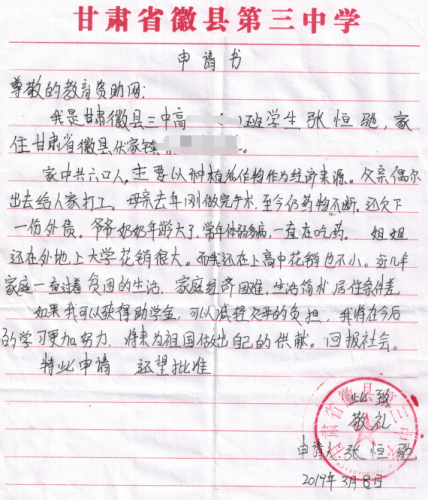 甘肃省徽县第三中学
申请书
尊敬的教育资助网:
我是甘肃徽县三中高 班学生 张恒驰,家
住甘肃省徽县伏家镇 。
家中共六口人,主要以种植农作物作为经济来源。父亲偶尔
出去给人家打工。母亲去年刚做完手术,至今仍药物不断,还欠下
一份外债。爷爷奶奶年龄大了,常年体弱多病,一直在吃药。姐姐
还在外地上大学花销很大。而我还在上高中花销也不小。这几年
家庭一直过着贫困的生活,家庭经济困难,生活简朴,居住条件差。
如果我可以获得助学金,可以减轻父母的负担,我将在今后
的学习更加努力,将来为祖国做出自己的供献。回报社会。
特此申请 还望批准
此致
敬礼
申请人:张恒驰
2019年3月8日
甘肃省徽县第三中学